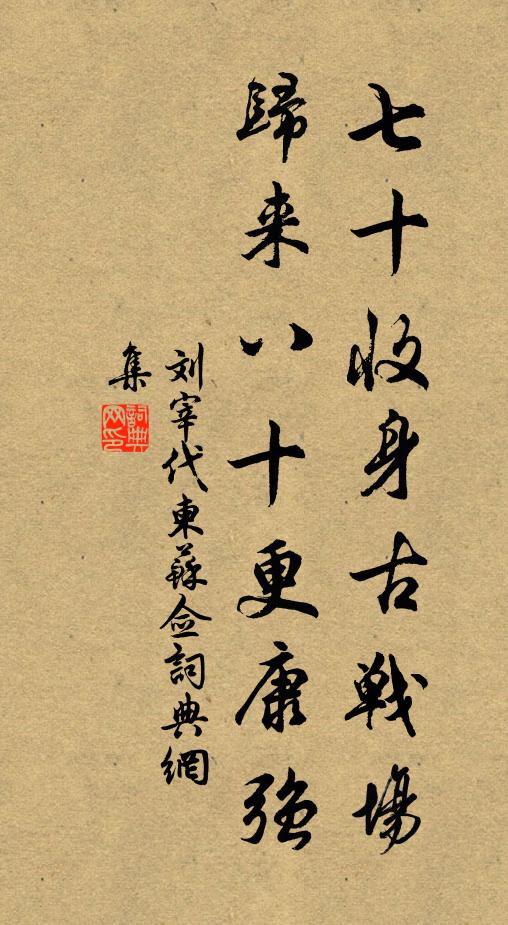 七十收身古戦場
歸来八十更康强
刘宰代東蘇佥詞典網
集
詞典
网印